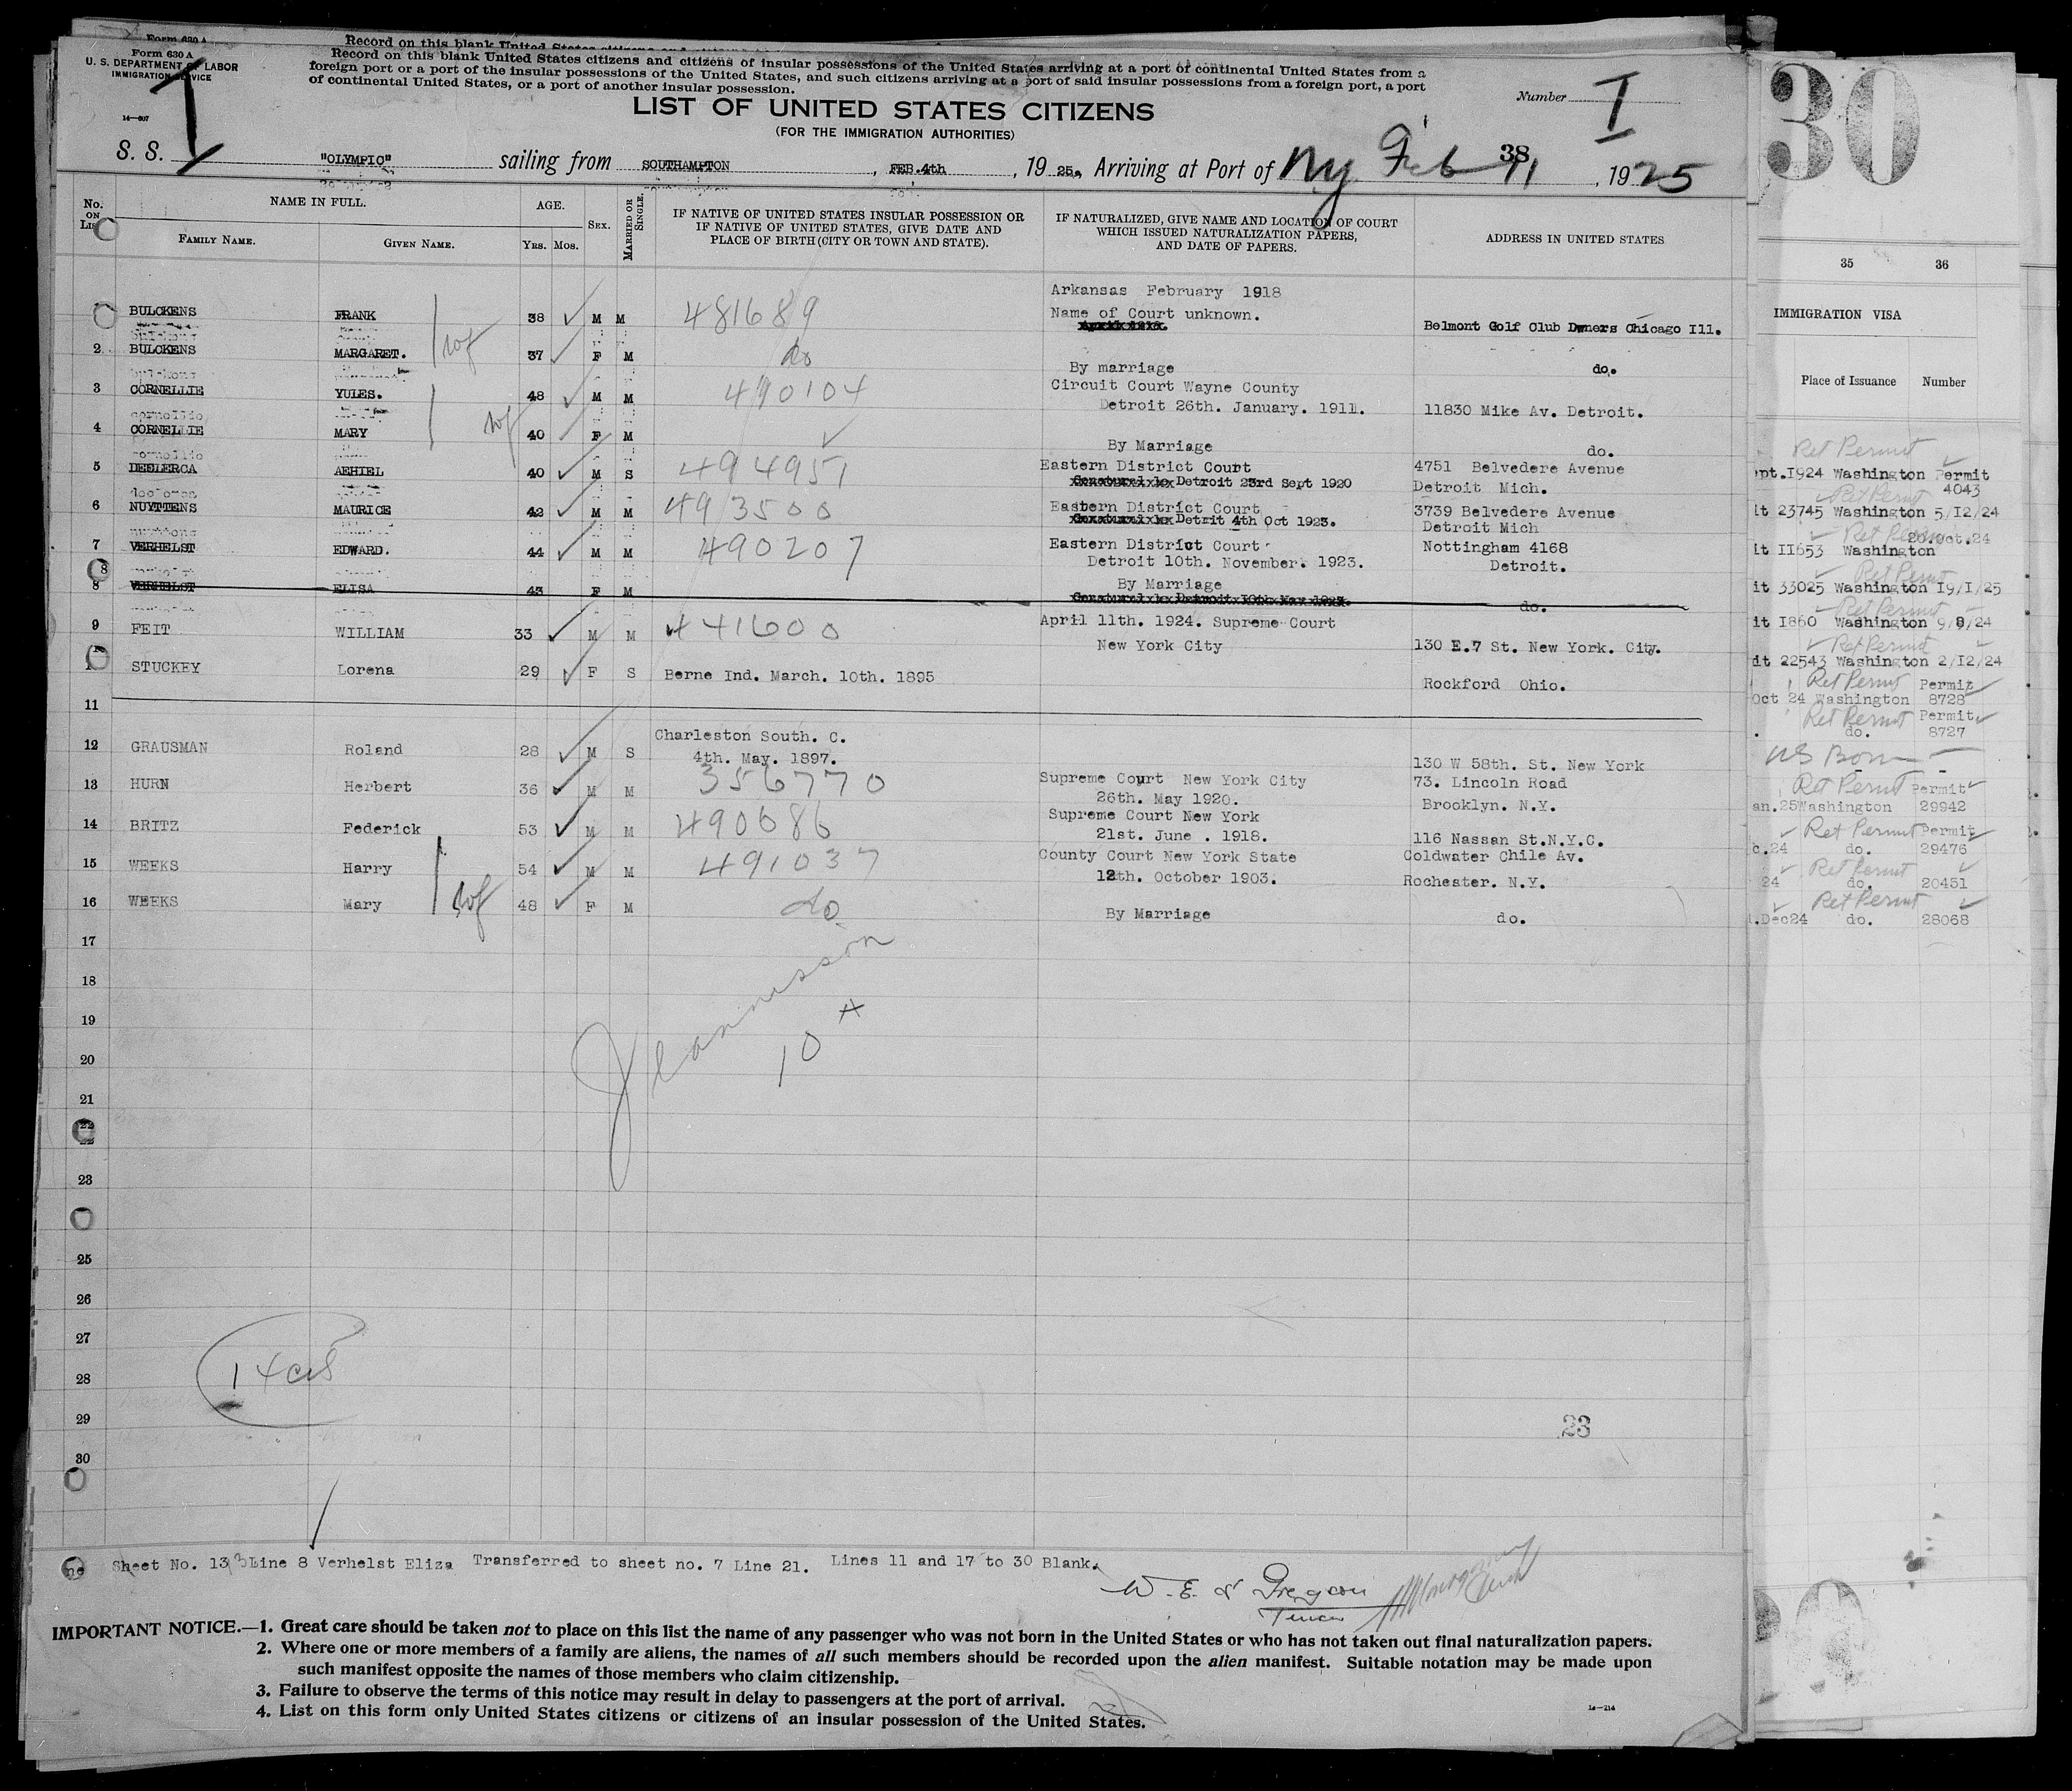 Form 630 A
Record on this blank United States citizens and
Form 630 A
U. S. DEPARTMENT OF LABOR
IMMIGRATION SERVICE
14—607
Record on this blank United States citizens and citizens of insular possessions of the United States arriving at a port of continental United States from a
foreign port or a port of the insular possessions of the United States, and such citizens arriving at a port of said insular possessions from a foreign port, a port
of continental United States, or a port of another insular possession.
Number I
LIST OF UNITED STATES CITIZENS
(FOR THE IMMIGRATION AUTHORITIES)
S. S. "OLYMPIC" sailing from SOUTHAMPTON, FEB.4th, 1925. Arriving at Port of Ny Feb 11, 1925
38
No. ON LIST
NAME IN FULL.
FAMILY NAME. GIVEN NAME.
AGE.
YRS. MOS.
SEX.
MARRIED OR SINGLE.
IF NATIVE OF UNITED STATES INSULAR POSSESSION OR
IF NATIVE OF UNITED STATES, GIVE DATE AND
PLACE OF BIRTH (CITY OR TOWN AND STATE).
IF NATURALIZED, GIVE NAME AND LOCATION OF COURT
WHICH ISSUED NATURALIZATION PAPERS,
AND DATE OF PAPERS.
ADDRESS IN UNITED STATES
Arkansas February 1918
BULCKENS FRANK 38 M M 481689 Name of Court unknown. Belmont Golf Club Downers Chicago Ill.
2 BULCKENS MARGARET. 37 F M do By marriage do.
3 CORNELLIE YULES. 48 M M 490104 Circuit Court Wayne County
Detroit 26th. January. 1911. 11830 Mike Av. Detroit.
4 CORNELLIE MARY 40 F M By Marriage do.
5 DESLERCA AEHIEL 40 M S 494951 Eastern District Court 4751 Belvedere Avenue
Detroit 23rd Sept 1920 Detroit Mich.
6 NUYTTENS MAURICE 42 M M 493500 Eastern District Court 3739 Belvedere Avenue
Detrit 4th Oct 1923. Detroit Mich
7 VERHELST EDWARD. 44 M M 490207 Eastern District Court Nottingham 4168
Detroit 10th. November. 1923. Detroit.
8 VERHELST ELISA 43 F M By Marriage do.
9 FEIT WILLIAM 33 M M 441600 April 11th. 1924. Supreme Court
New York City 130 E.7 St. New York. City.
STUCKEY Lorena 29 F S Berne Ind. March. 10th. 1895 Rockford Ohio.
11
Charleston South. C.
12 GRAUSMAN Roland 28 M S 4th. May. 1897. 130 W 58th. St. New York
13 HURN Herbert 36 M M 356770 Supreme Court New York City 73. Lincoln Road
26th. May 1920. Brooklyn. N.Y.
14 BRITZ Federick 53 M M 490686 Supreme Court New York
21st. June . 1918. 116 Nassan St.N.Y.C.
15 WEEKS Harry 54 M M 491037 County Court New York State Coldwater Chile Av.
12th. October 1903. Rochester. N.Y.
16 WEEKS Mary 48 F M do By Marriage do.
17
18
19
20
21
22
23
25
26
27
28
29
30
Jeannisson
10
23
Sheet No. 13 Line 8 Verhelst Eliza Transferred to sheet no. 7 Line 21. Lines 11 and 17 to 30 Blank.
IMPORTANT NOTICE.—1. Great care should be taken not to place on this list the name of any passenger who was not born in the United States or who has not taken out final naturalization papers.
2. Where one or more members of a family are aliens, the names of all such members should be recorded upon the alien manifest. Suitable notation may be made upon
such manifest opposite the names of those members who claim citizenship.
3. Failure to observe the terms of this notice may result in delay to passengers at the port of arrival.
4. List on this form only United States citizens or citizens of an insular possession of the United States.
14—214
30
35 36
IMMIGRATION VISA
Place of Issuance Number
Ret Permit
pt.1924 Washington Permit
4043
Ret Permit
it 23745 Washington 5/12/24
Ret Permit 20.Oct.24
it II653 Washington
Ret Permit
it 33025 Washington 19/1/25
Ret Permit
it I860 Washington 9/9/24
Ret Permit
it 22543 Washington 2/12/24
Ret Permit Permit
Oct 24 Washington 8728
Ret Permit Permit
do. 8727
US Born
Ret Permit Permit
an.25 Washington 29942
Ret Permit Permit
c.24 do. 29476
Ret Permit
24 do. 20451
Ret Permit
.Dec24 do. 28068